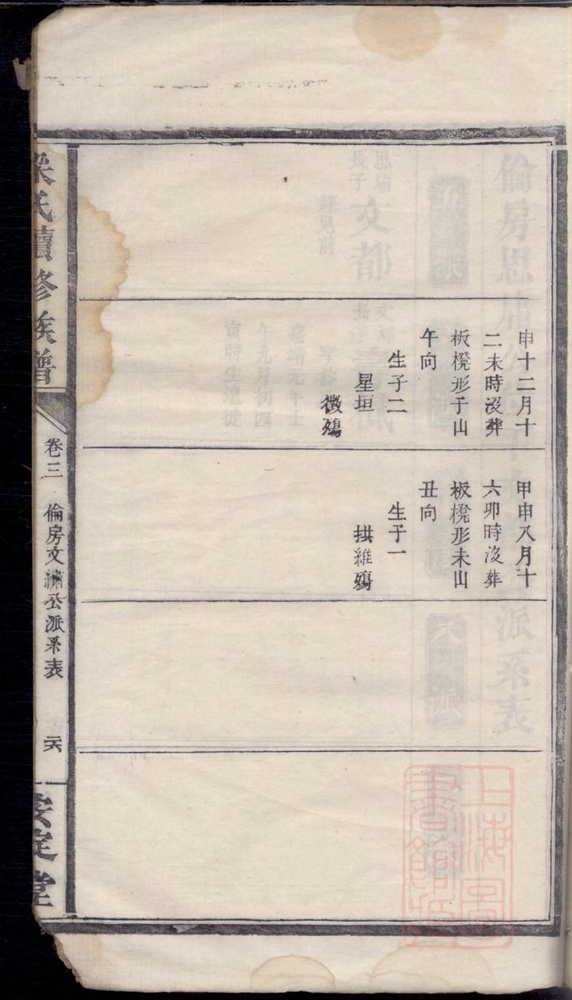 申十二月十
二未時沒葬
板櫈形子山
午向
生子二
星垣
徵殤
甲申八月十
六卯時沒葬
板櫈形未山
丑向
生子一
拱維殤
氏續修族譜
卷三
倫房文繡公派系表
安定堂
上海圖書館藏